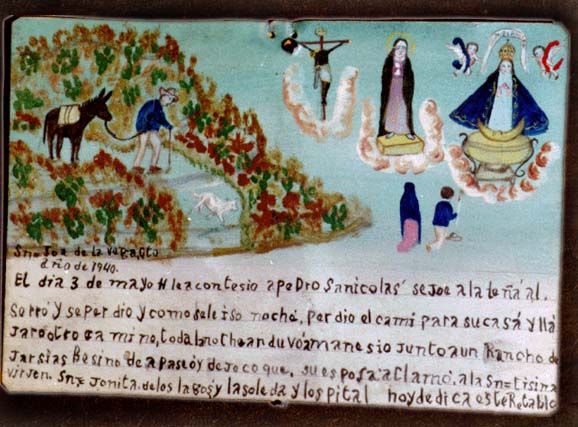 Sn= Joe de la Vega, Gto
año de 1940.
El dia 3 de mayo leacontesio apeDro Sanicolas se Joe a la teña al.
Sorro y seperdio y como sele iso noche, perdio el cami para su casa y
Jaro otro camino, toda la noche anduvo amanesio junto a un Rancho de
Jarsias Besino de apaseo y de Jocoque, su esposa aclamo, a la Sn= tisima
virjen. Sn= Jonita. de los lagos y la soleda y los pital hoy dedica este Retablo